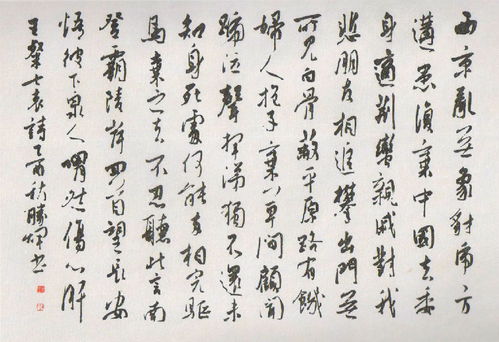 西京亂無象豺虎方
遘患復棄中國去委
身適荊蠻親戚對我
悲朋友相追攀出門無
所見白骨蔽平原路有饑
婦人抱子棄草間顧聞
號泣聲揮涕獨不還未
知身死處何能兩相完驅
馬棄之去不忍聽此言南
登霸陵岸回首望長安
悟彼下泉人喟然傷心肝
王粲七哀詩乙酉勝書